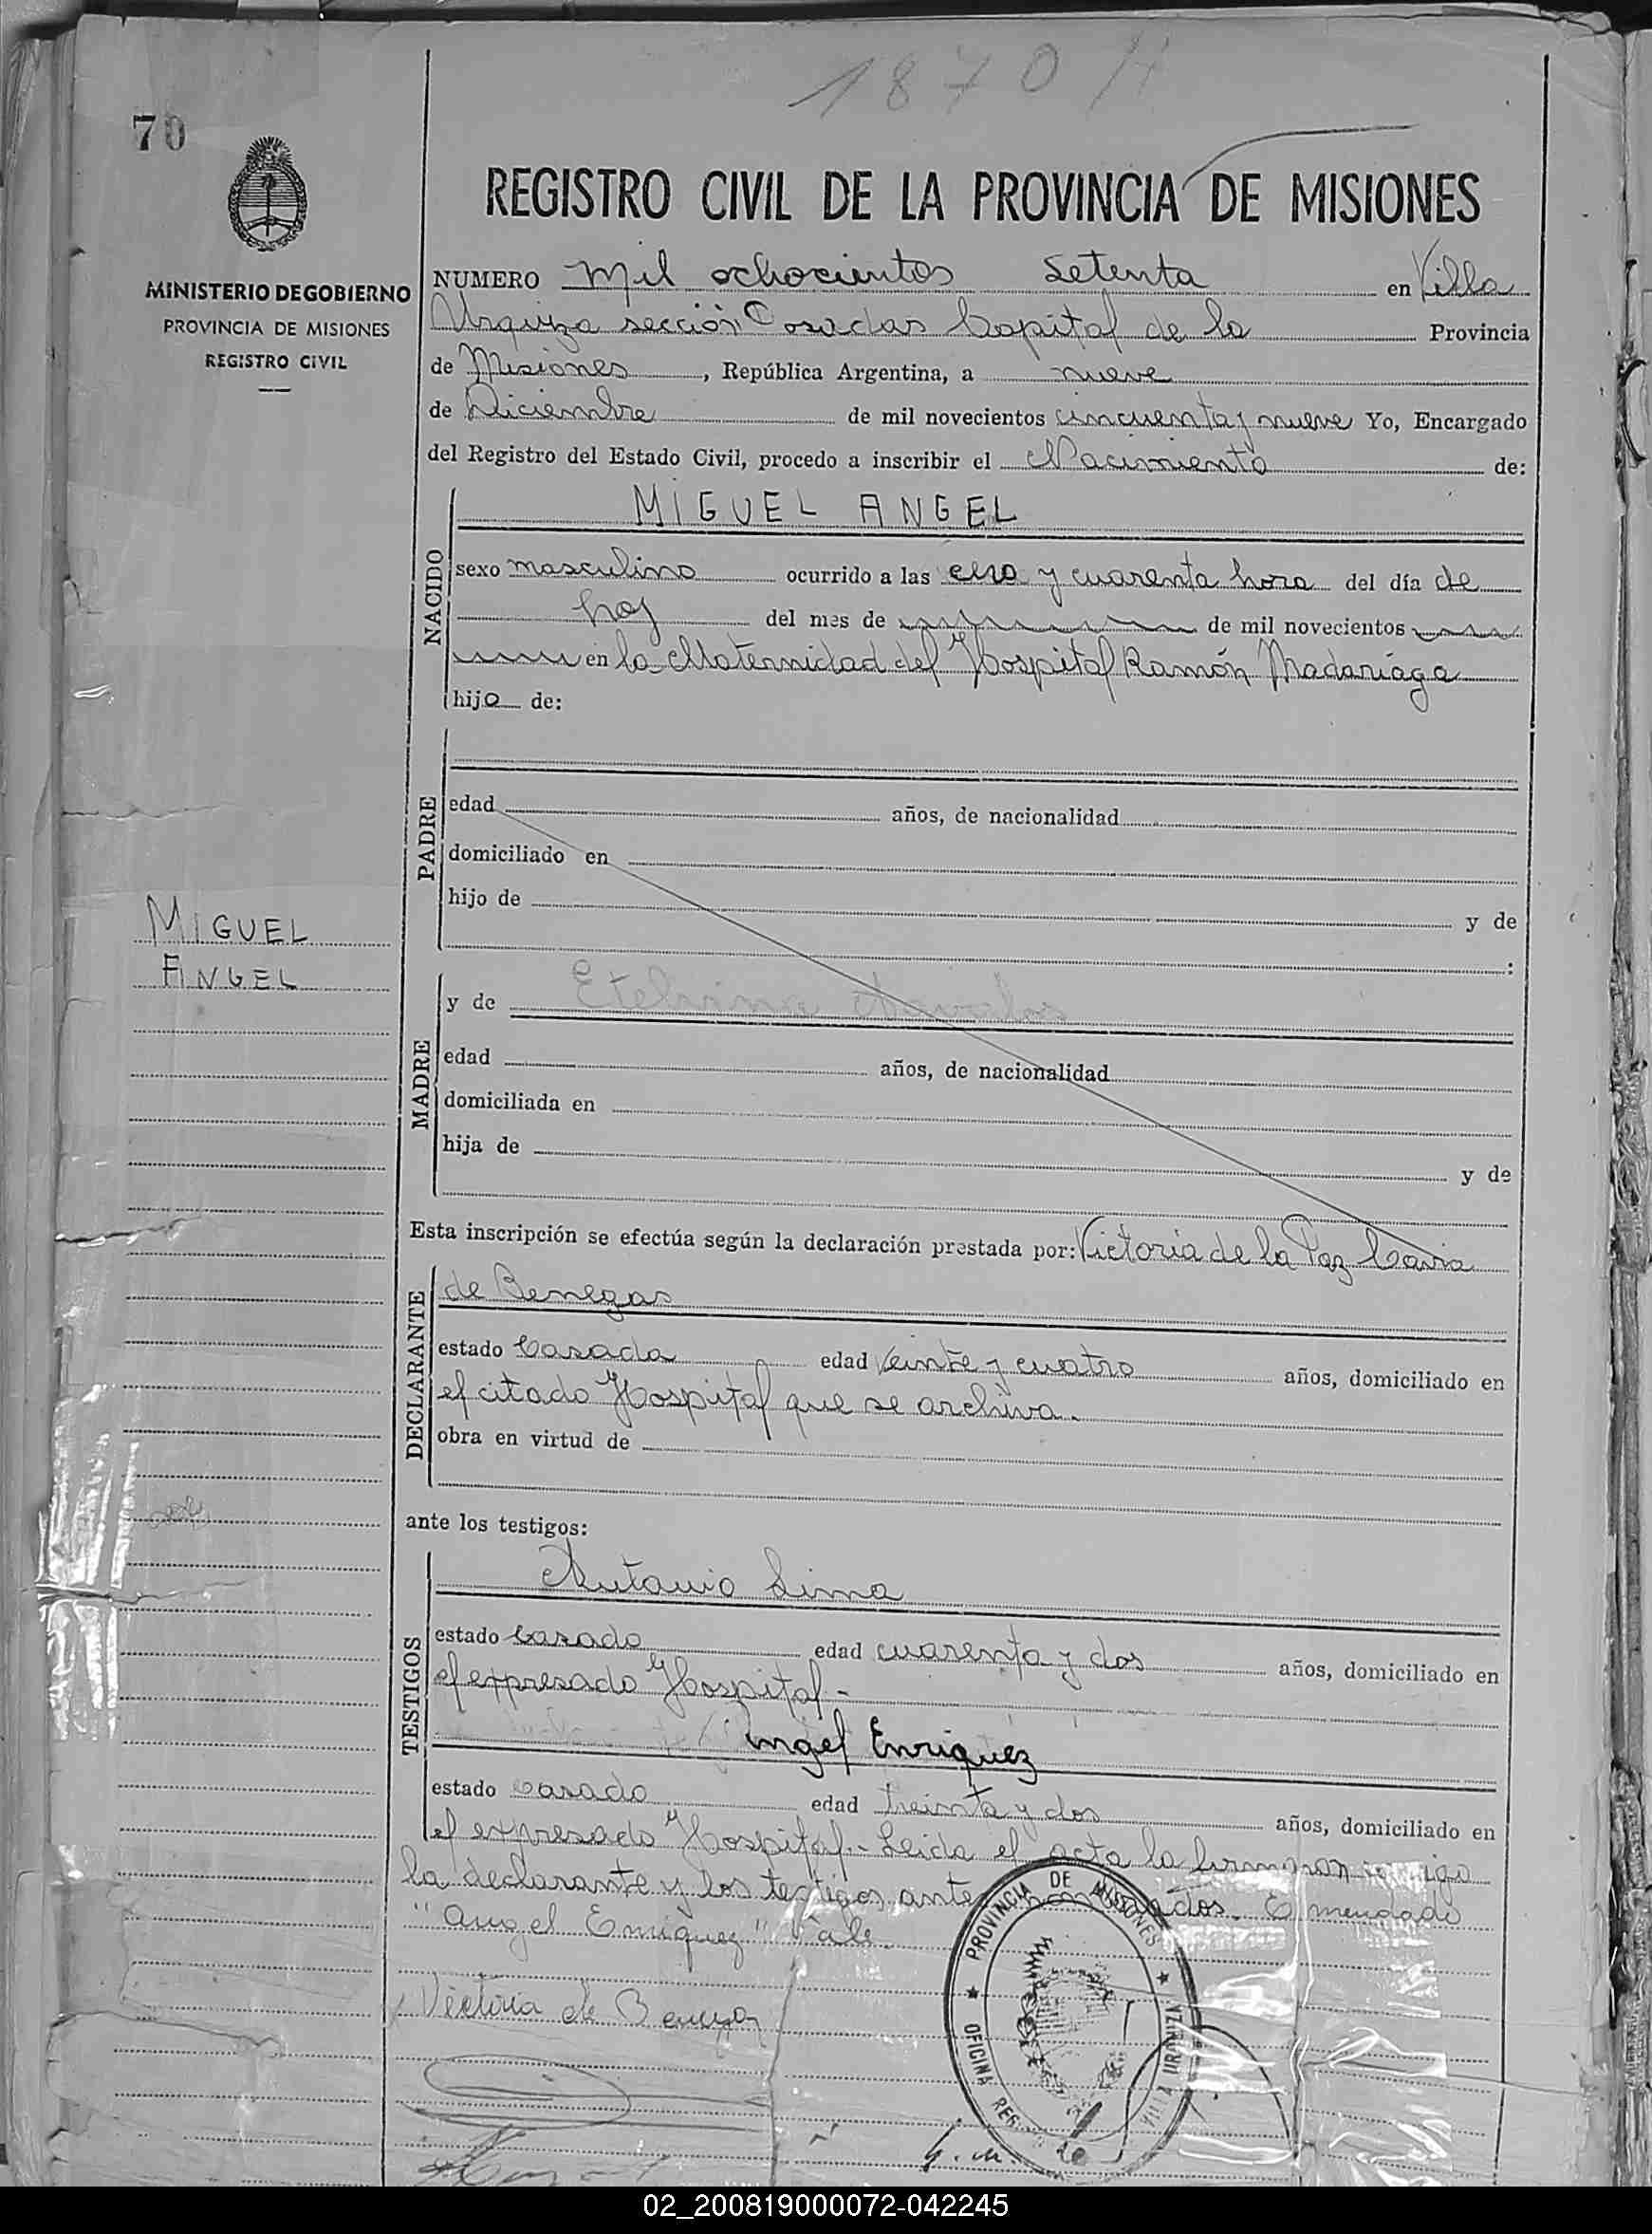 1870 H
70
REGISTRO CIVIL DE LA PROVINCIA DE MISIONES
MINISTERIO DE GOBIERNO
PROVINCIA DE MISIONES
REGISTRO CIVIL
NUMERO Mil ochocientos setenta en Villa
Urquiza sección Posadas Capital de la Provincia
de Misiones, República Argentina, a nueve
de Diciembre de mil novecientos cincuenta y nueve Yo, Encargado
del Registro del Estado Civil, procedo a inscribir el Nacimiento de:
MIGUEL ANGEL
NACIDO
sexo masculino ocurrido a las cero y cuarenta hora del día de
hoy del mes de de mil novecientos
en la Maternidad del Hospital Ramón Madariaga
hijo de:
PADRE
edad años, de nacionalidad
domiciliado en
hijo de y de
:
MIGUEL
ANGEL
MADRE
y de Etelvina
edad años, de nacionalidad
domiciliada en
hija de y de
Esta inscripción se efectúa según la declaración prestada por: Victoria de la Paz
de Benegas
DECLARANTE
estado Casada edad veinte y cuatro años, domiciliado en
el citado Hospital que se archiva.
obra en virtud de
ante los testigos:
Antonio Lima
TESTIGOS
estado casado edad cuarenta y dos años, domiciliado en
el expresado Hospital -
Angel Enriquez
estado casado edad treinta y dos años, domiciliado en
el expresado Hospital.- Leida el acta la firmaron conmigo
la declarante y los testigos ante nombrados. Enmendado
"Angel Enriquez" Vale.
Victoria de Benegas
PROVINCIA DE MISIONES
OFICINA REG
VILLA URQUIZA
02_200819000072-042245